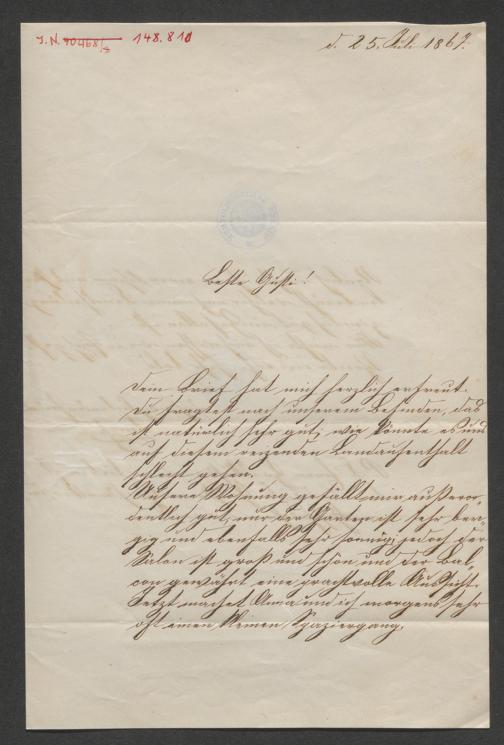 J.N. 70468/5 148.810
d. 25. Juli 1867.
Beste Gusti!
Dein Brief hat mich herzlich erfreut.
Du fragtest nach unserem Befinden, das
ist natürlich sehr gut, wie könnte es uns
auf diesem reizenden Landaufenthalt
schlecht gehen.
Unsere Wohnung gefällt mir außeror-
dentlich gut, nur der Garten ist sehr ber-
gig und ebenfalls sehr sonnig, jedoch der
Salon ist groß und schön und der Bal-
con gewährt eine prachtvolle Aussicht.
Jetzt machet Anna und ich morgens sehr
oft einen kleinen Spaziergang.